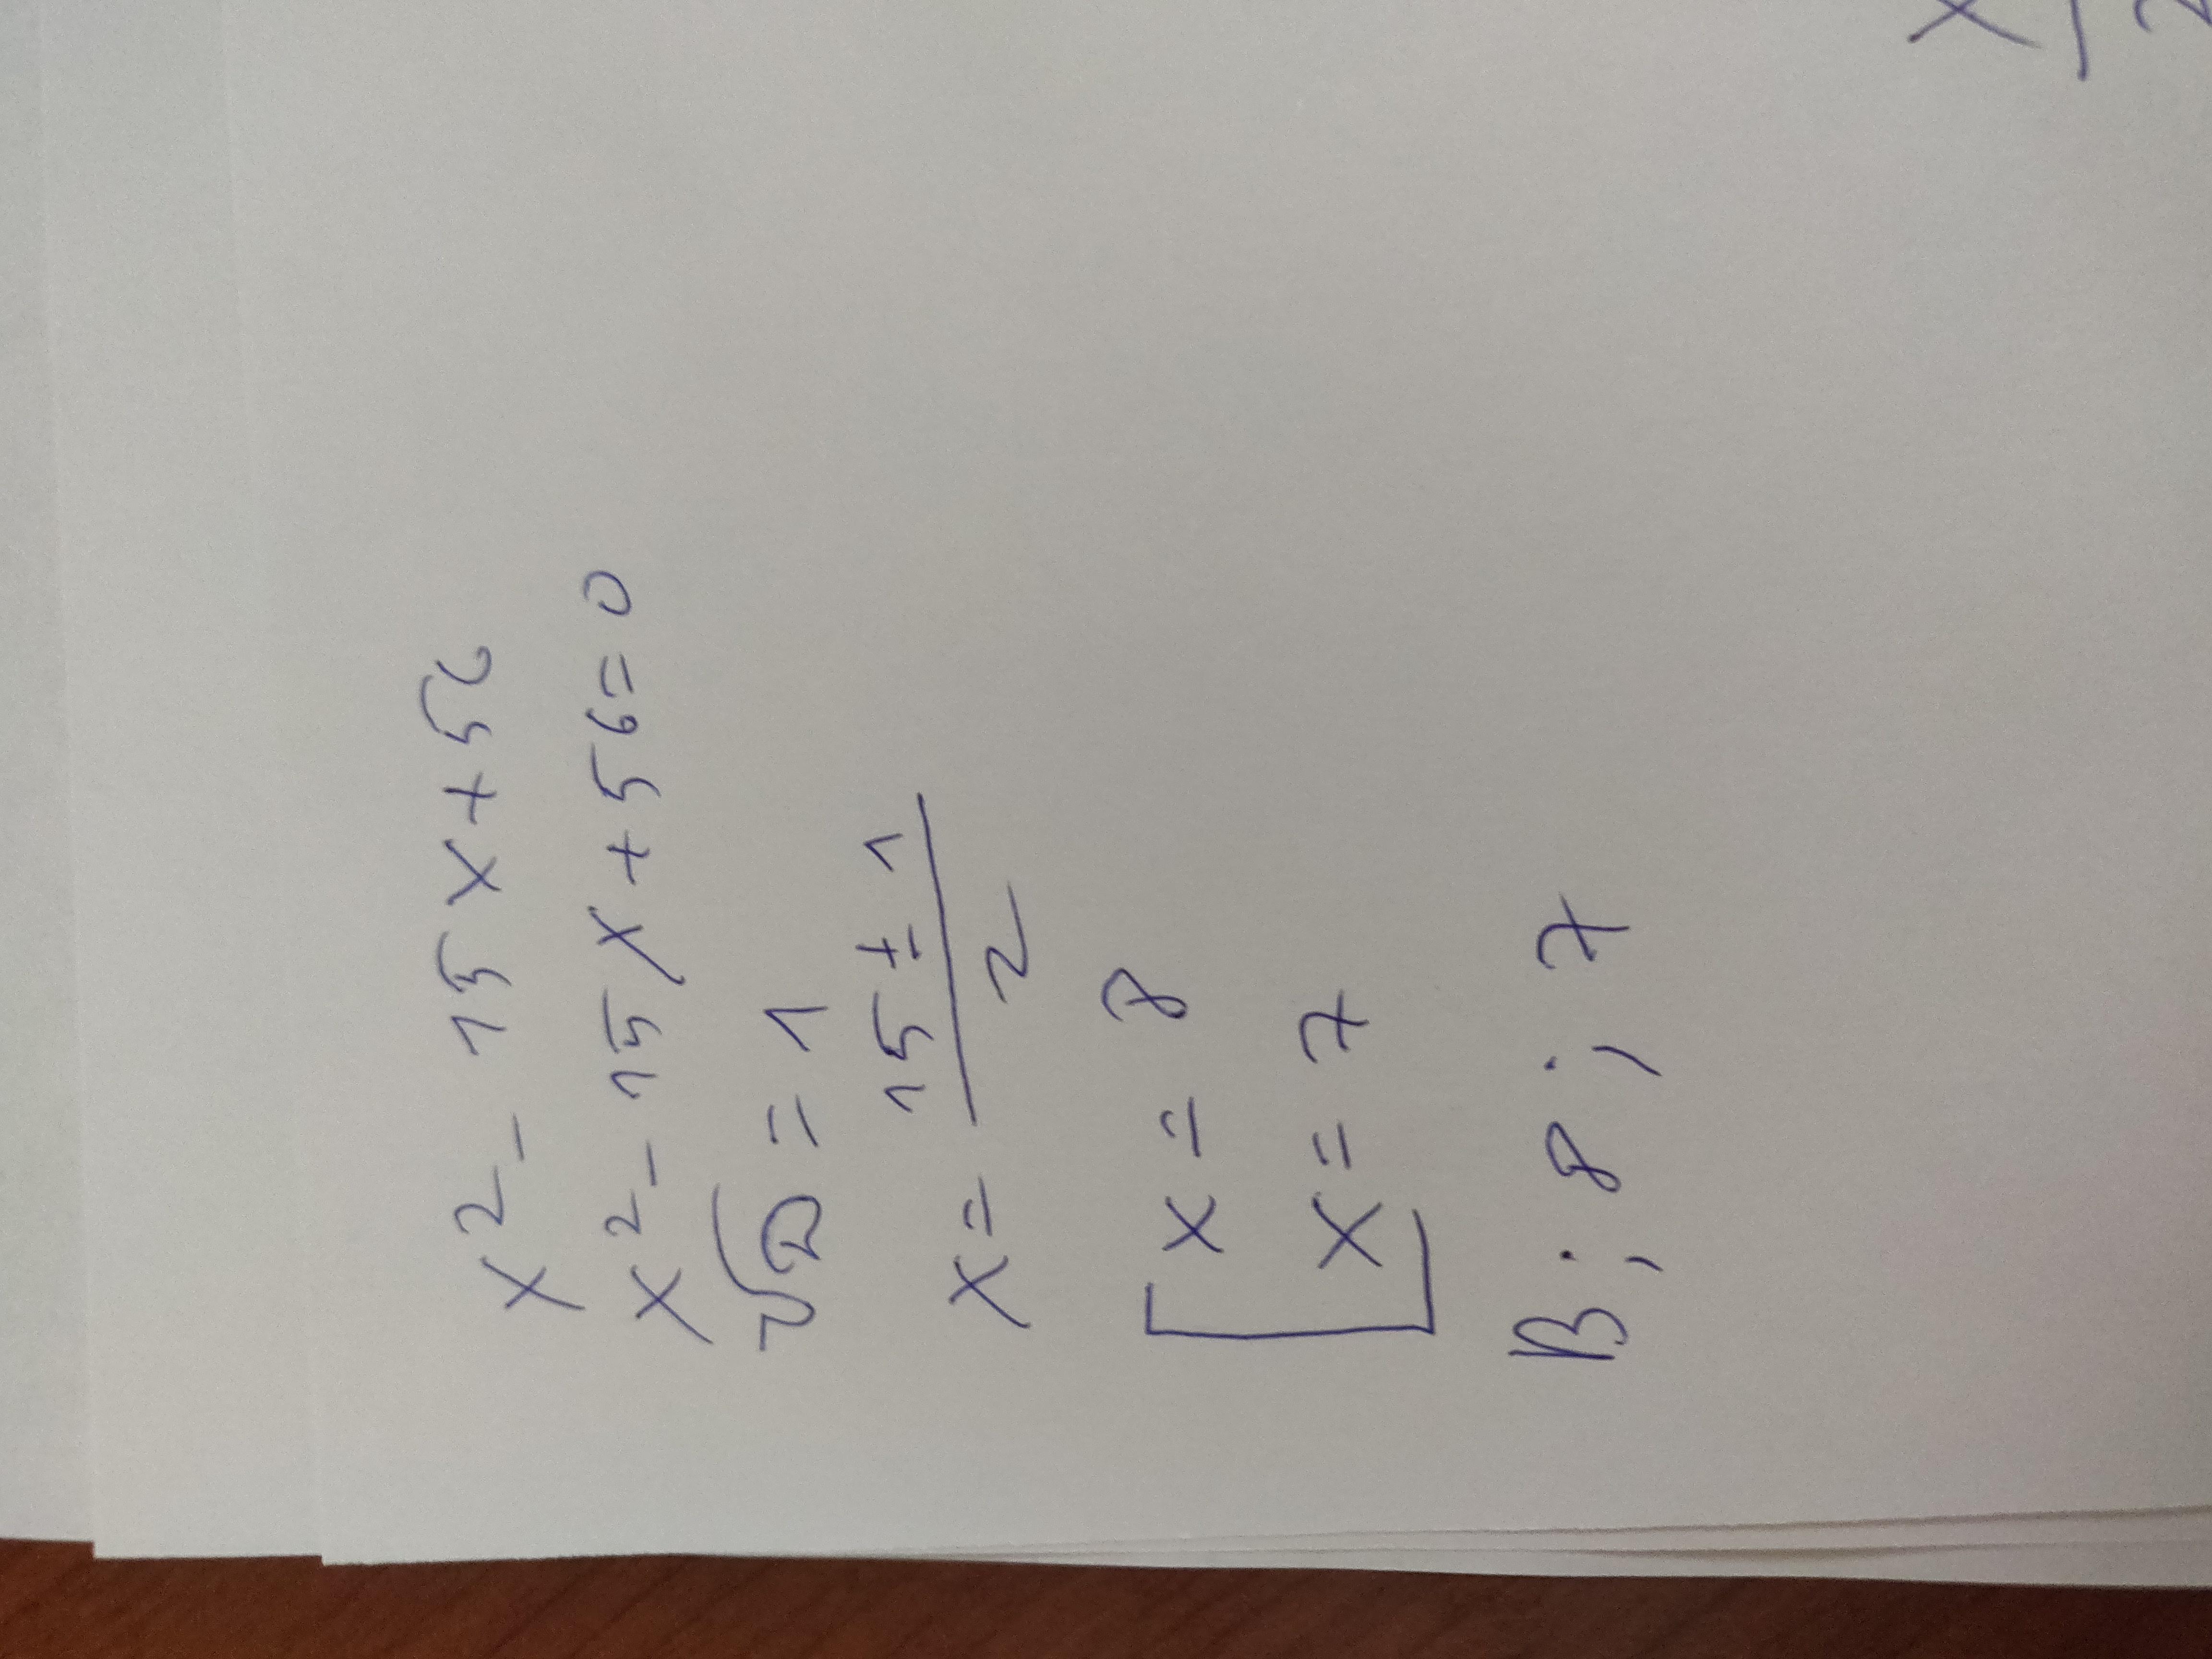 x² - 15x + 56
x² - 15x + 56 = 0
√D = 1
x = (15 ± 1)/2
[x = 8
x = 7
B: 8; 7